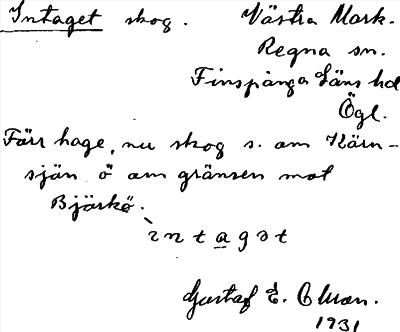 Intaget skog. Västra Mark.
Regna sn.
Finspånga Läns hd
Ögl.
Förr hage, nu skog s. om Kärn-
sjön ö om gränsen mot
Björkö.
ìntagət
Gustaf E. Olson.
1931